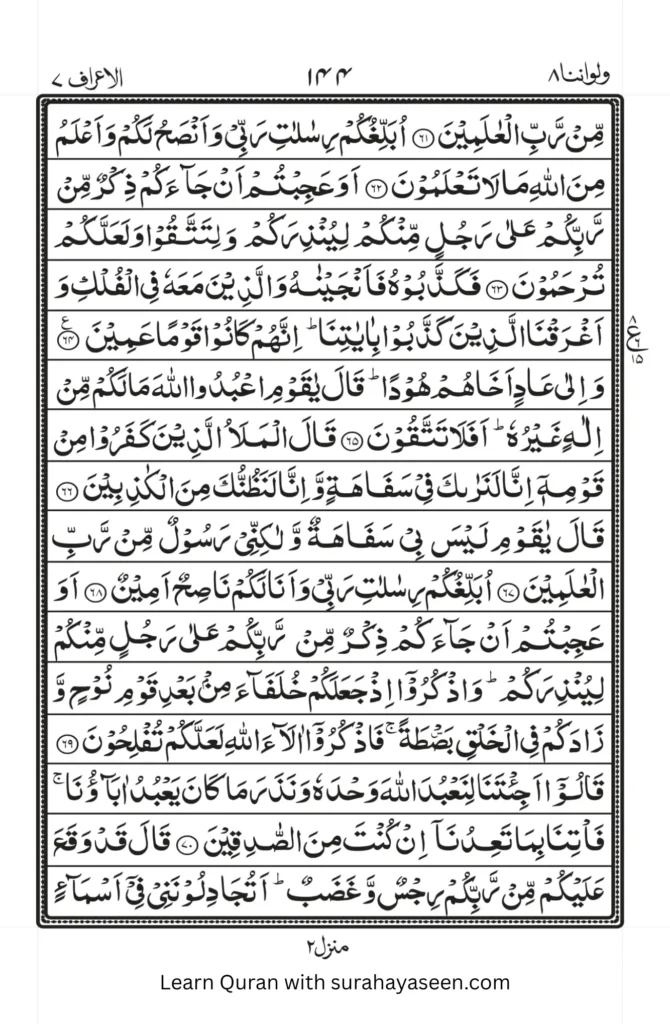 ولواننا ٨ ١٤٤ الاعراف ٧
مِّنۡ رَّبِّ الۡعٰلَمِيۡنَ ﴿۶۱﴾ اُبَلِّغُكُمۡ رِسٰلٰتِ رَبِّىۡ وَاَنۡصَحُ لَـكُمۡ وَاَعۡلَمُ
مِنَ اللّٰهِ مَا لَا تَعۡلَمُوۡنَ ﴿۶۲﴾ اَوَعَجِبۡتُمۡ اَنۡ جَآءَكُمۡ ذِكۡرٌ مِّنۡ
رَّبِّكُمۡ عَلٰى رَجُلٍ مِّنۡكُمۡ لِيُنۡذِرَكُمۡ وَلِتَتَّقُوۡا وَلَعَلَّكُمۡ
تُرۡحَمُوۡنَ ﴿۶۳﴾ فَكَذَّبُوۡهُ فَاَنۡجَيۡنٰهُ وَالَّذِيۡنَ مَعَهٗ فِى الۡفُلۡكِ وَ
اَغۡرَقۡنَا الَّذِيۡنَ كَذَّبُوۡا بِاٰيٰتِنَا ؕ اِنَّهُمۡ كَانُوۡا قَوۡمًا عَمِيۡنَ ﴿۶۴﴾ ع ٨ ٦ ١٥
وَاِلٰى عَادٍ اَخَاهُمۡ هُوۡدًا ؕ قَالَ يٰقَوۡمِ اعۡبُدُوا اللّٰهَ مَا لَـكُمۡ مِّنۡ
اِلٰهٍ غَيۡرُهٗ ؕ اَفَلَا تَتَّقُوۡنَ ﴿۶۵﴾ قَالَ الۡمَلَاُ الَّذِيۡنَ كَفَرُوۡا مِنۡ
قَوۡمِهٖۤ اِنَّا لَــنَرٰٮكَ فِىۡ سَفَاهَةٍ وَّاِنَّا لَــنَظُنُّكَ مِنَ الۡـكٰذِبِيۡنَ ﴿۶۶﴾
قَالَ يٰقَوۡمِ لَـيۡسَ بِىۡ سَفَاهَةٌ وَّلٰـكِنِّىۡ رَسُوۡلٌ مِّنۡ رَّبِّ
الۡعٰلَمِيۡنَ ﴿۶۷﴾ اُبَلِّغُكُمۡ رِسٰلٰتِ رَبِّىۡ وَاَنَا لَـكُمۡ نَاصِحٌ اَمِيۡنٌ ﴿۶۸﴾ اَوَ
عَجِبۡتُمۡ اَنۡ جَآءَكُمۡ ذِكۡرٌ مِّنۡ رَّبِّكُمۡ عَلٰى رَجُلٍ مِّنۡكُمۡ
لِيُنۡذِرَكُمۡ ؕ وَاذۡكُرُوۡۤا اِذۡ جَعَلَـكُمۡ خُلَفَآءَ مِنۡۢ بَعۡدِ قَوۡمِ نُوۡحٍ وَّ
زَادَكُمۡ فِى الۡخَـلۡقِ بَصۜۡطَةً ۚ فَاذۡكُرُوۡۤا اٰ لَۤاءَ اللّٰهِ لَعَلَّكُمۡ تُفۡلِحُوۡنَ ﴿۶۹﴾
قَالُوۡۤا اَجِئۡتَنَا لِنَعۡبُدَ اللّٰهَ وَحۡدَهٗ وَنَذَرَ مَا كَانَ يَعۡبُدُ اٰبَآؤُنَا ۚ
فَاۡتِنَا بِمَا تَعِدُنَاۤ اِنۡ كُنۡتَ مِنَ الصّٰدِقِيۡنَ ﴿۷۰﴾ قَالَ قَدۡ وَقَعَ
عَلَيۡكُمۡ مِّنۡ رَّبِّكُمۡ رِجۡسٌ وَّغَضَبٌ ؕ اَتُجَادِلُوۡنَنِىۡ فِىۡۤ اَسۡمَآءٍ
منزل ٢
Learn Quran with surahayaseen.com